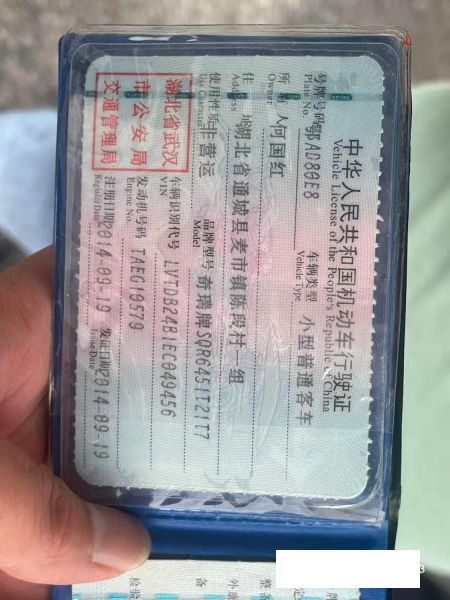 中华人民共和国机动车行驶证
Vehicle License of the People's Republic of China
号牌号码 鄂AD80E8 车辆类型 小型普通客车
Plate No. Vehicle Type
所 人 何国红
Owner
住 湖北省通城县麦市镇陈段村一组
Address
使用性质 非营运 品牌型号 奇瑞牌SQR6451T21T7
Use Character Model
湖北省武汉
市公安局
交通管理局
车辆识别代号 LVTDB24B1EC049456
VIN
发动机号码 TAEG10579
Engine No.
注册日期 2014-09-19 发证日期 2014-09-19
Register Date Issue Date
牌
整备
外廓
备
检验
3